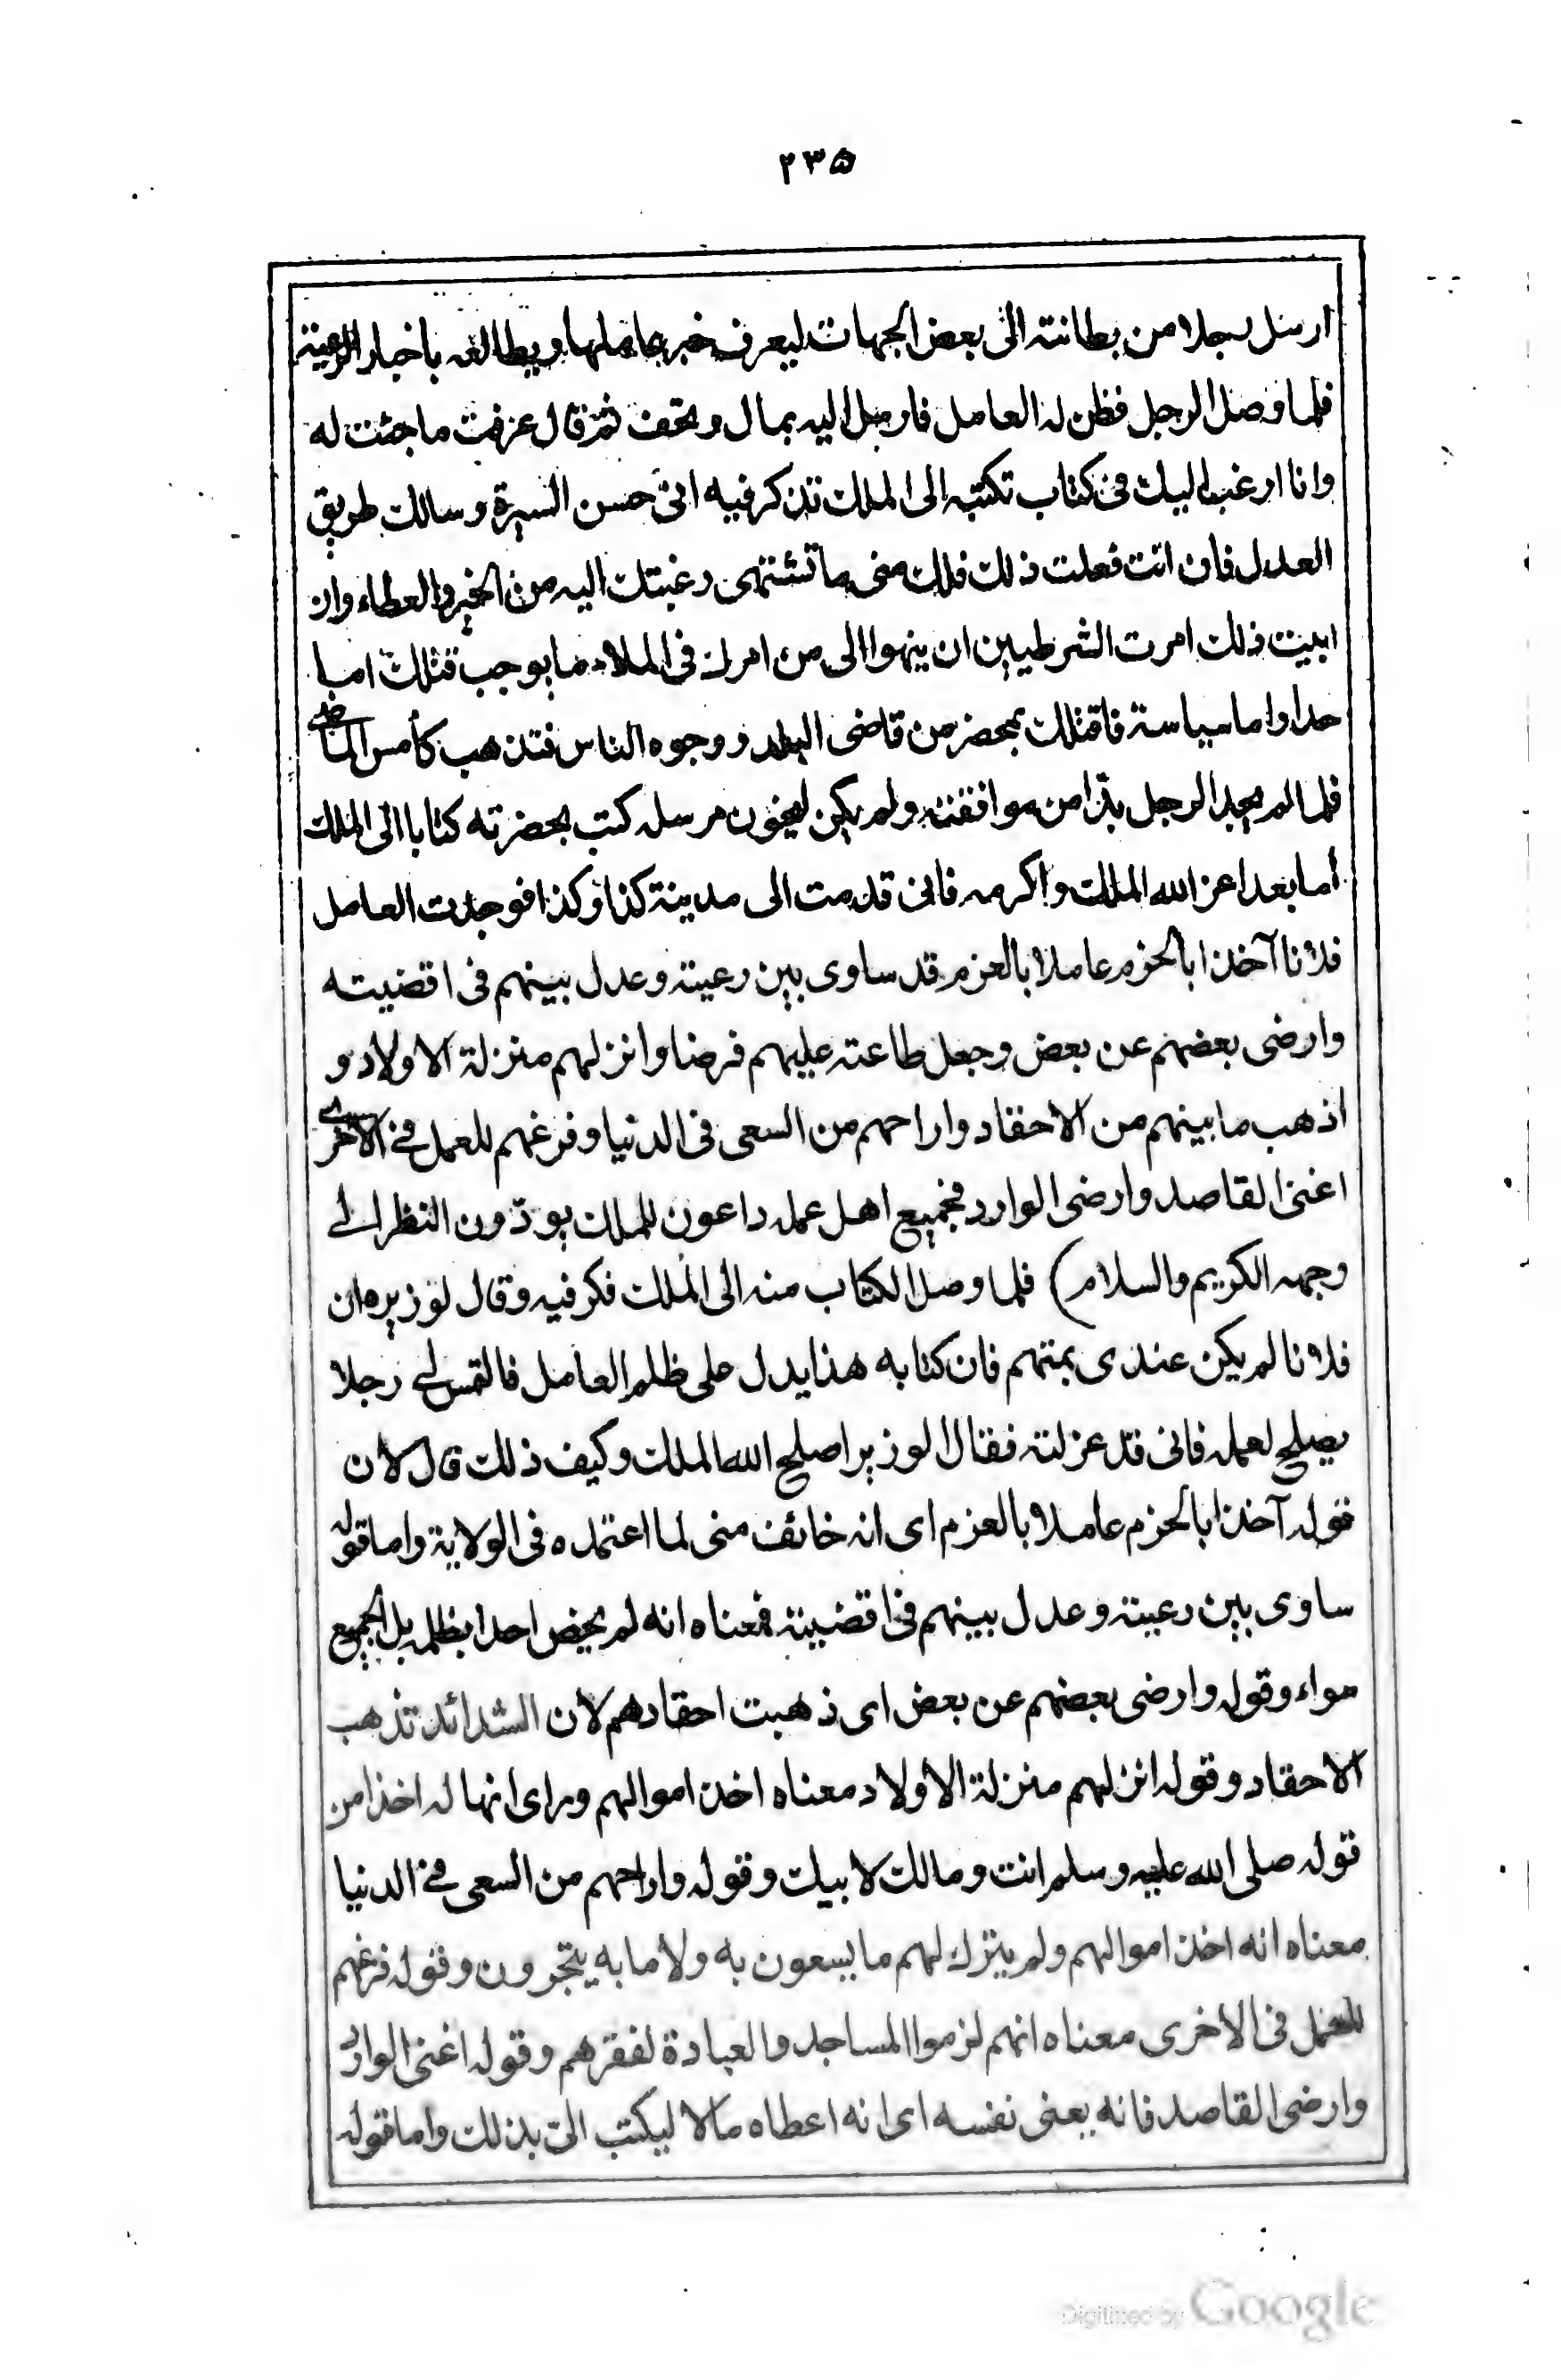 ۲۳۵
ارسل رجلا من بطانته الى بعض الجهات ليعرف خبر عاملها ويطالعه باخبار الرعية
فلما وصل الرجل فظن له العامل فارسل اليه بمال وتحف ثم قال عرفت ما جئت له
وانا ارغب اليك فى كتاب تكتبه الى الملك تذكر فيه انى حسن السيرة وسالك طريق
العدل فأن انت فعلت ذلك فلك منى ما تشتهى رغبتك اليه من الخير والعطاء وان
ابيت ذلك امرت الشرطيين ان ينهوا الى من امرك فى الملاء ما يوجب قتلك اما
حدا واما سياسة فاقتلك بمحضر من قاضى البلد ووجوه الناس فتذهب كأمس الماضے
فلما لم يجد الرجل بدّا من موافقته ولم يكن ليخون مرسله كتب بحضرته كتابا الى الملك
أما بعد اعز الله الملك واكرمه فانى قدمت الى مدينة كذا وكذا فوجدت العامل
فلانا آخذا بالحزم عاملا بالعزم قد ساوى بين رعيته وعدل بينهم فى اقضيته
وارضى بعضهم عن بعض وجعل طاعته عليهم فرضا وانزلهم منزلة الاولاد و
اذهب ما بينهم من الاحقاد واراحهم من السعى فى الدنيا وفرغهم للعمل فے الاخرے
اغنى القاصد وارضى الوارد فجميع اهل عمله داعون للملك يودّون النظر الے
وجهه الكريم والسلام) فلما وصل الكتاب منه الى الملك فكر فيه وقال لوزيره ان
فلانا لم يكن عندى بمتهم فان كتابه هذا يدل على ظلم العامل فالتمس لے رجلا
يصلح لعمله فانى قد عزلته فقال الوزير اصلح الله الملك وكيف ذلك قال لان
قوله آخذا بالحزم عاملا بالعزم اى انه خائف منى لما اعتمده فى الولاية واما قوله
ساوى بين رعيته وعدل بينهم فى اقضيته فمعناه انه لم يخض احدا بظلمه بل الجميع
سواء وقوله وارضى بعضهم عن بعض اى ذهبت احقادهم لأن الشدائد تذهب
الاحقاد وقوله انزلهم منزلة الاولاد معناه اخذ اموالهم وراى انها له اخذا من
قوله صلى الله عليه وسلم انت ومالك لابيك وقوله واراحهم من السعى فے الدنيا
معناه انه اخذ اموالهم ولم يترك لهم ما يسعون به ولا ما به يتجرون وقوله فرغهم
للعمل فى الاخرى معناه انهم لزموا المساجد والعبادة لفقرهم وقوله اغنى الوارد
وارضى القاصد فانه يعنى نفسه اى انه اعطاه مالا ليكتب الىّ بذلك واما قوله
Digitized by Google